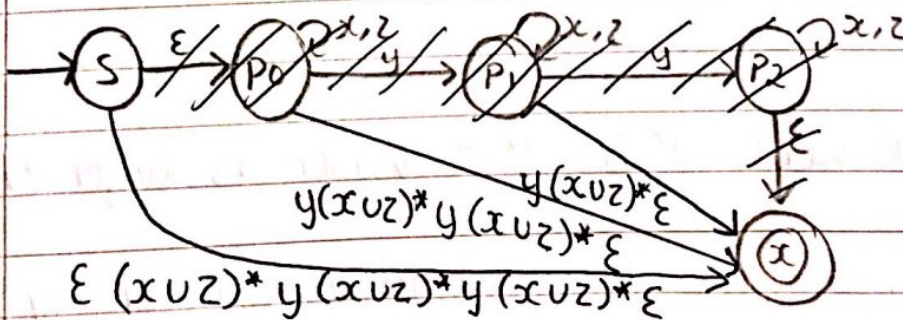 S ε P0 x,z y P1 x,z y P2 x,z
ε
y(x∪z)*ε
y(x∪z)*y(x∪z)*ε
x
ε(x∪z)*y(x∪z)*y(x∪z)*ε